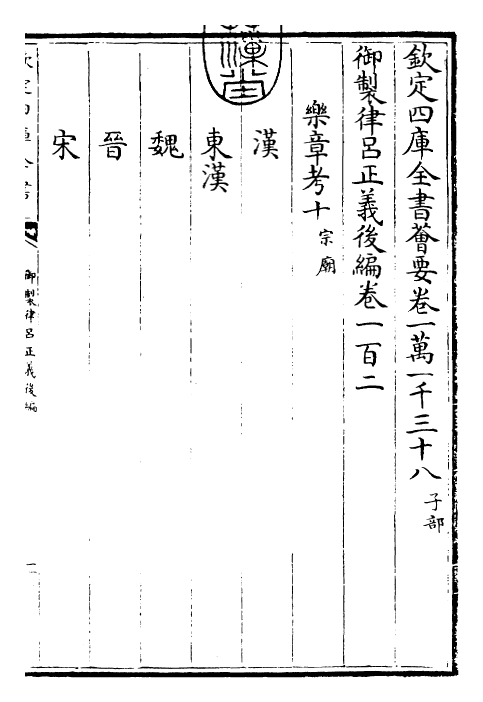 欽定四庫全書薈要卷一萬一千三十八 子部
御製律呂正義後編卷一百二
樂章考十 宗廟
漢
東漢
魏
晉
宋
御製律呂正義後編